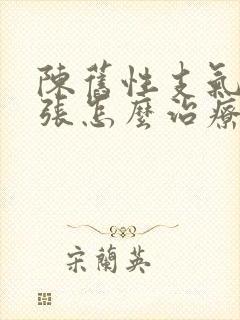 陳舊性支氣
張怎麼治療
宋蘭英